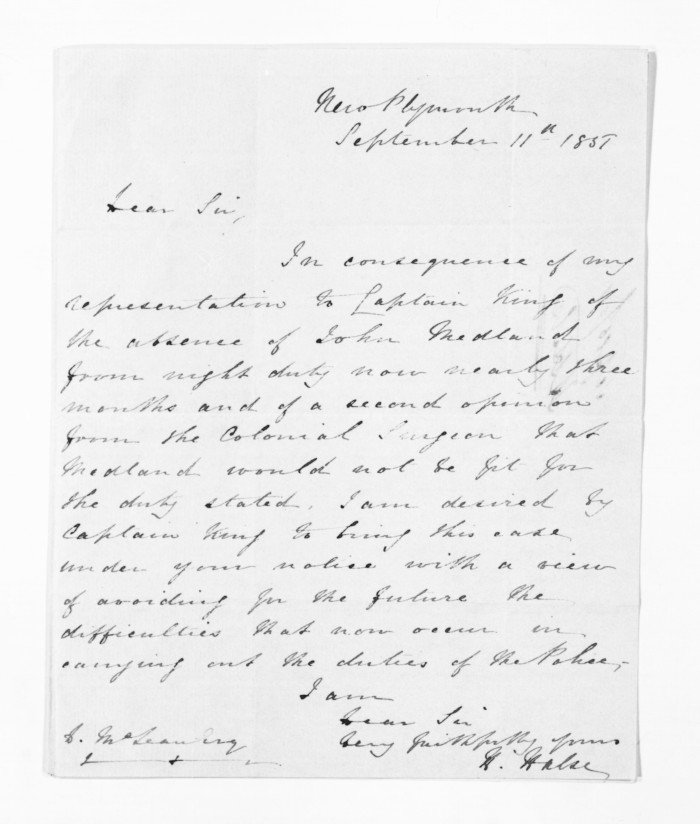 New Plymouth
September 11th 1851
Dear Sir,
In consequence of my
representation to Captain King of
the absence of John Medland
from night duty now nearly three
months and of a second opinion
from the Colonial Surgeon that
Medland would not be fit for
the duty stated, I am desired by
Captain King to bring this case
under your notice with a view
of avoiding for the future the
difficulties that now occur in
carrying out the duties of the Police,
I am
Dear Sir
Very faithfully yours
H. Halse
D. McLean Esq